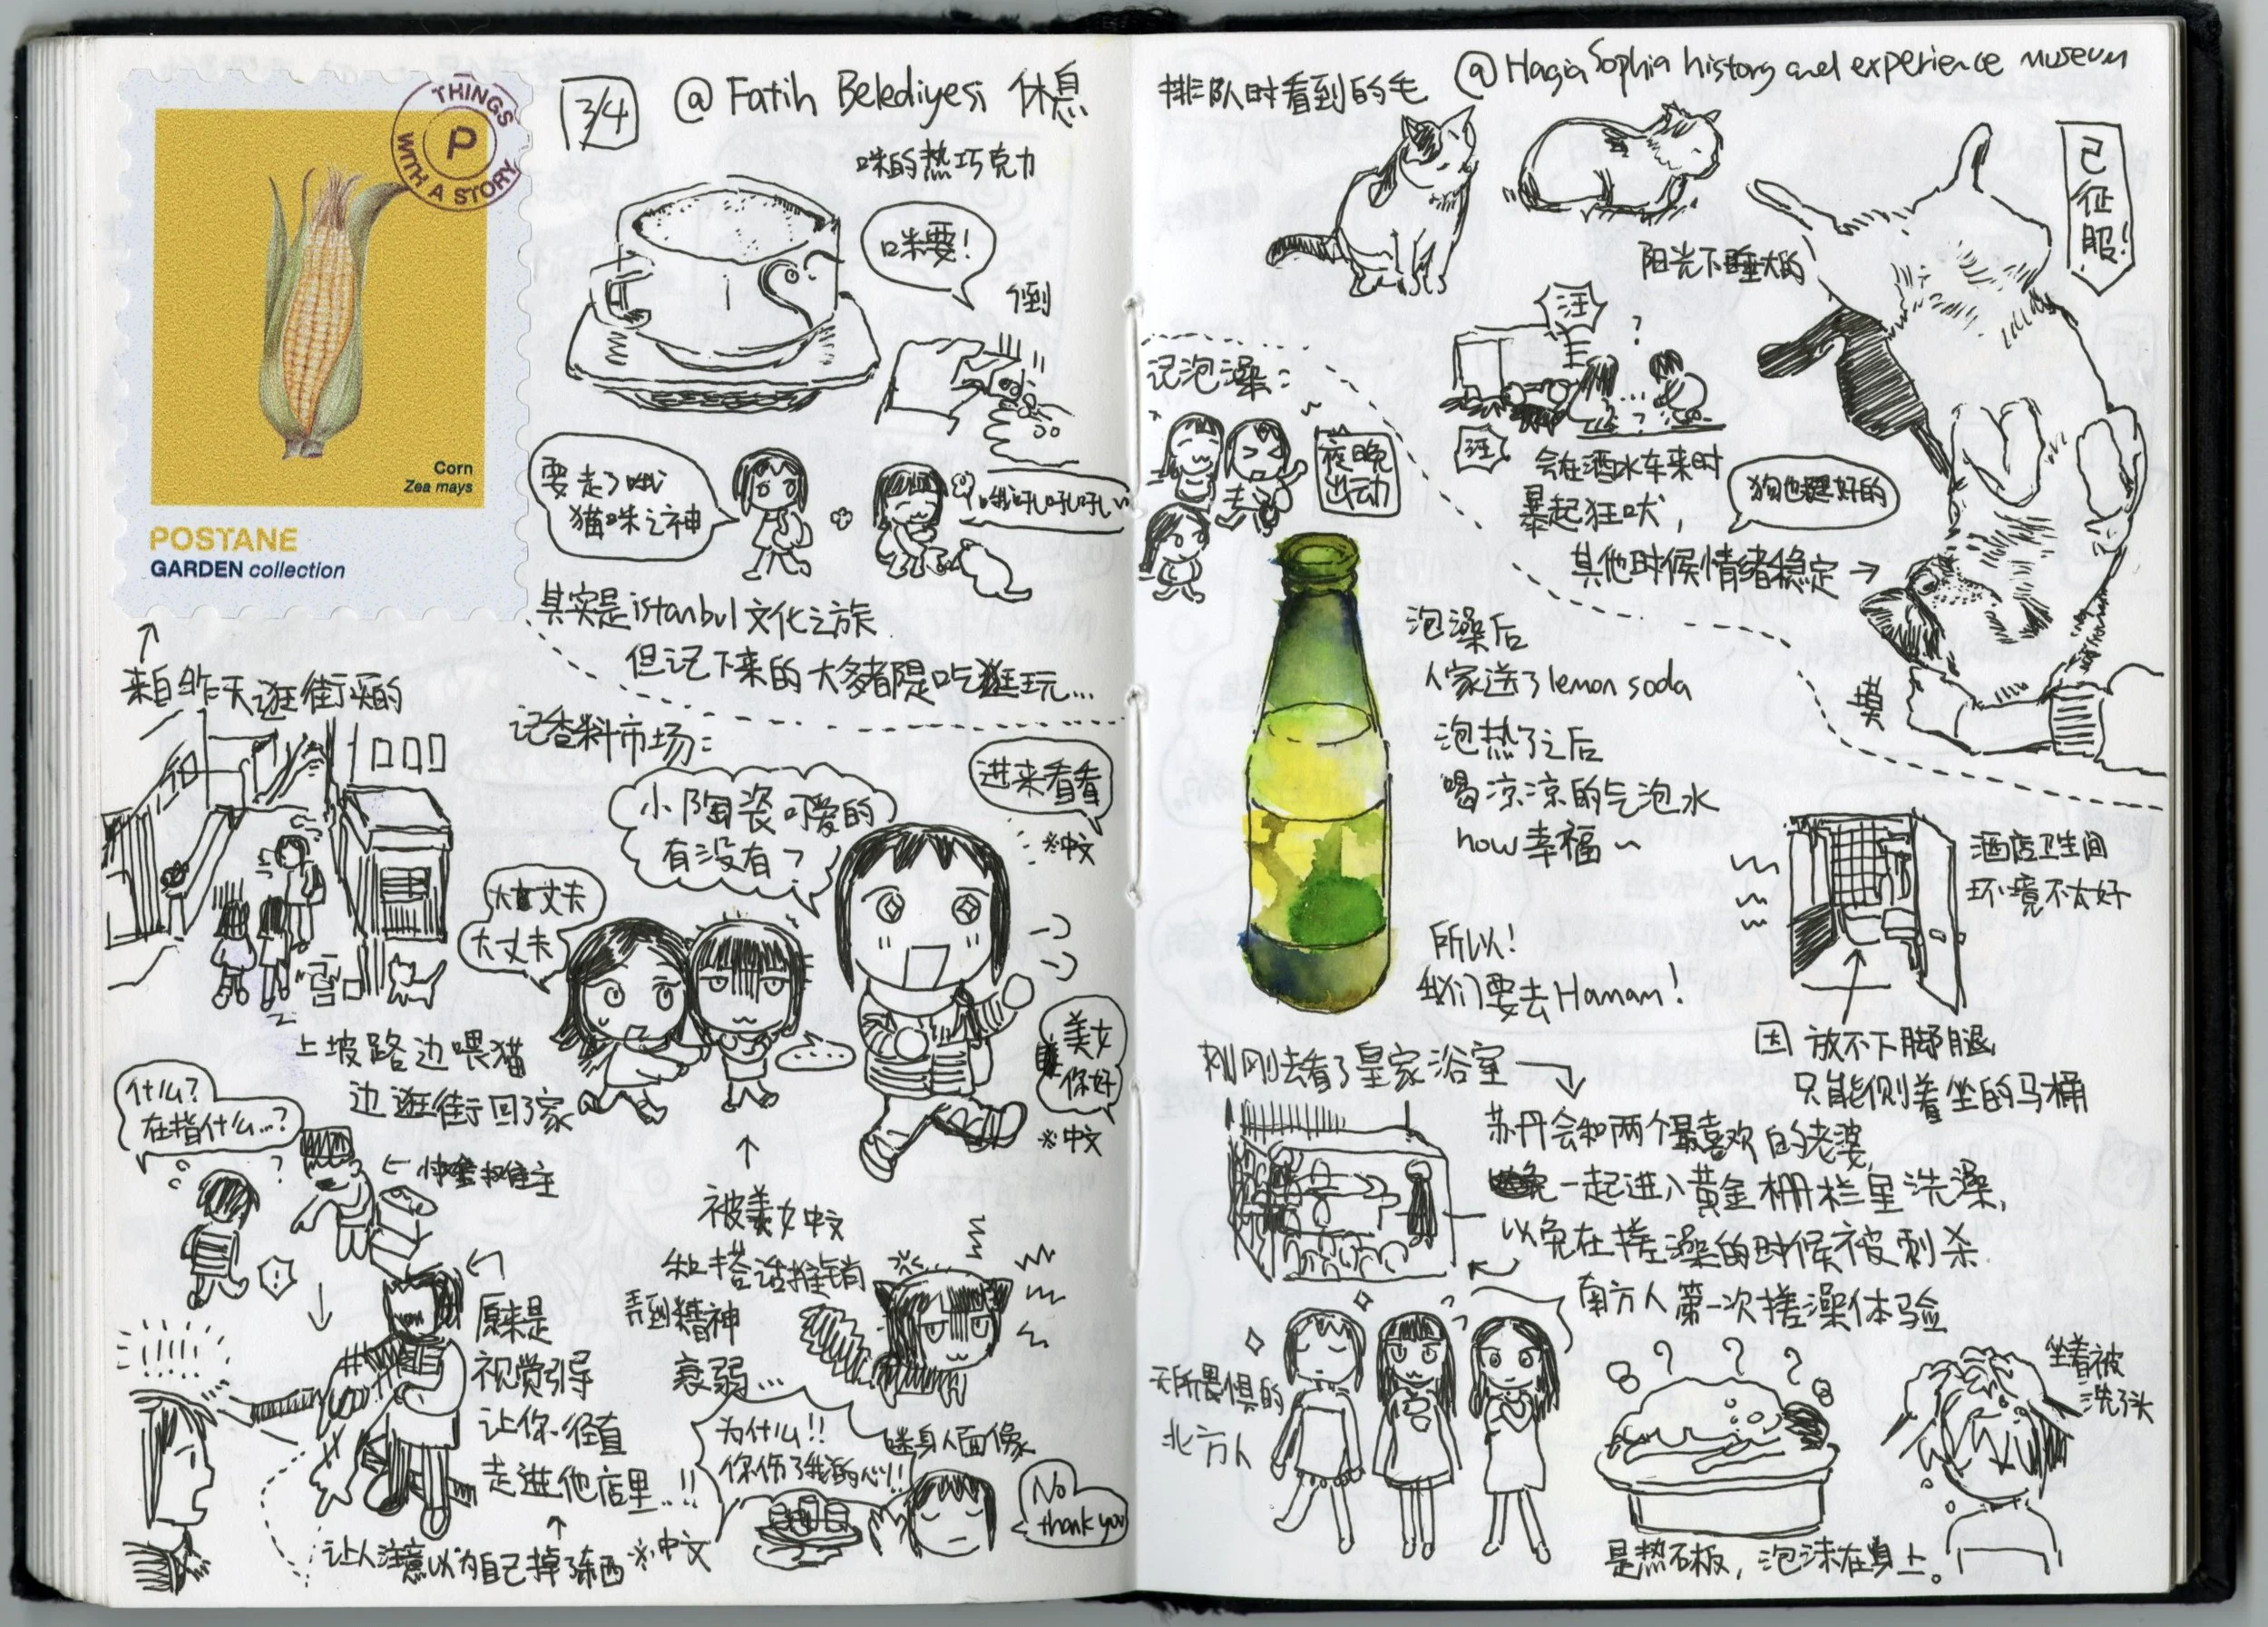 THINGS
WITH A STORY
P
Corn
Zea mays
POSTANE
GARDEN collection
来自昨天逛街买的
3/4
@ Fatih Belediyesi 休息
咪的热巧克力
咪要!
倒
要走了哦
猫咪之神
其实是istanbul文化之旅
但记下来的大多都是吃逛玩...
记香料市场:
进来看看
※中文
小陶瓷可爱的
有没有?
大丈夫
大丈夫
...
美女
你好
※中文
上坡路边喂猫
边逛街回了家
什么?
在指什么...?
原来是
视觉引导
让你径直
走进他店里..!!
让人注意以为自己掉了东西
被美女中文
和搭话推销
弄到精神
衰弱...
为什么!!
你伤了我的心!!
※中文
狮身人面像
No
thank you
排队时看到的毛
@Hagia Sophia history and experience museum
已征服!
阳光下睡大的
汪
汪
会在洒水车来时
暴起狂吠,
其他时候情绪稳定→
狗也挺好的
摸
记泡澡:
夜晚
出动
泡澡后
人家送了lemon soda
泡热了之后
喝凉凉的气泡水
now幸福~
所以!
我们要去Hamam!
酒店卫生间
环境不太好
因放不下脚腿
只能侧着坐的马桶
刚刚去看了皇家浴室
苏丹会和两个最喜欢的老婆
一起进入黄金栅栏里洗澡,
以免在搓澡的时候被刺杀
南方人第一次搓澡体验
无所畏惧的
北方人
坐着被
洗了头
是热石板,泡沫在身上。